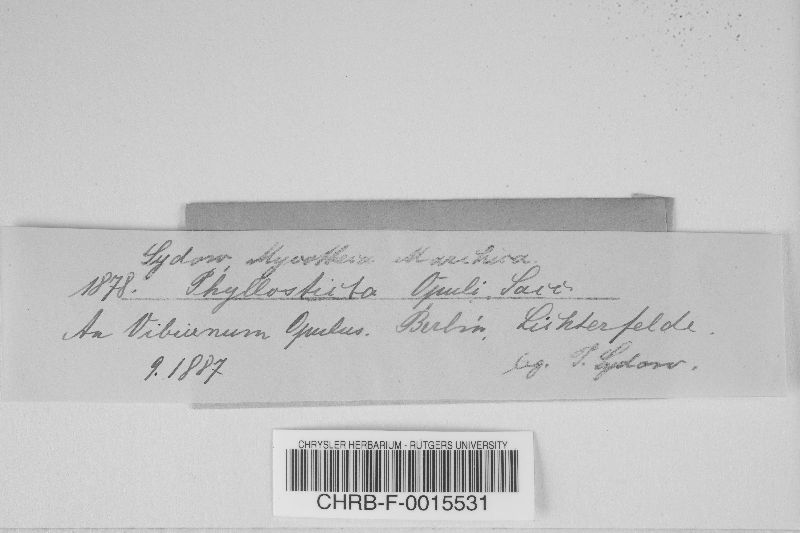 Sydow, Mycotheca Marchica.
1878. Phyllosticta Opuli Sacc
An Viburnum Opulus. Berlin, Lichterfelde.
9.1887 leg. P. Sydow.
CHRYSLER HERBARIUM - RUTGERS UNIVERSITY
CHRB-F-0015531